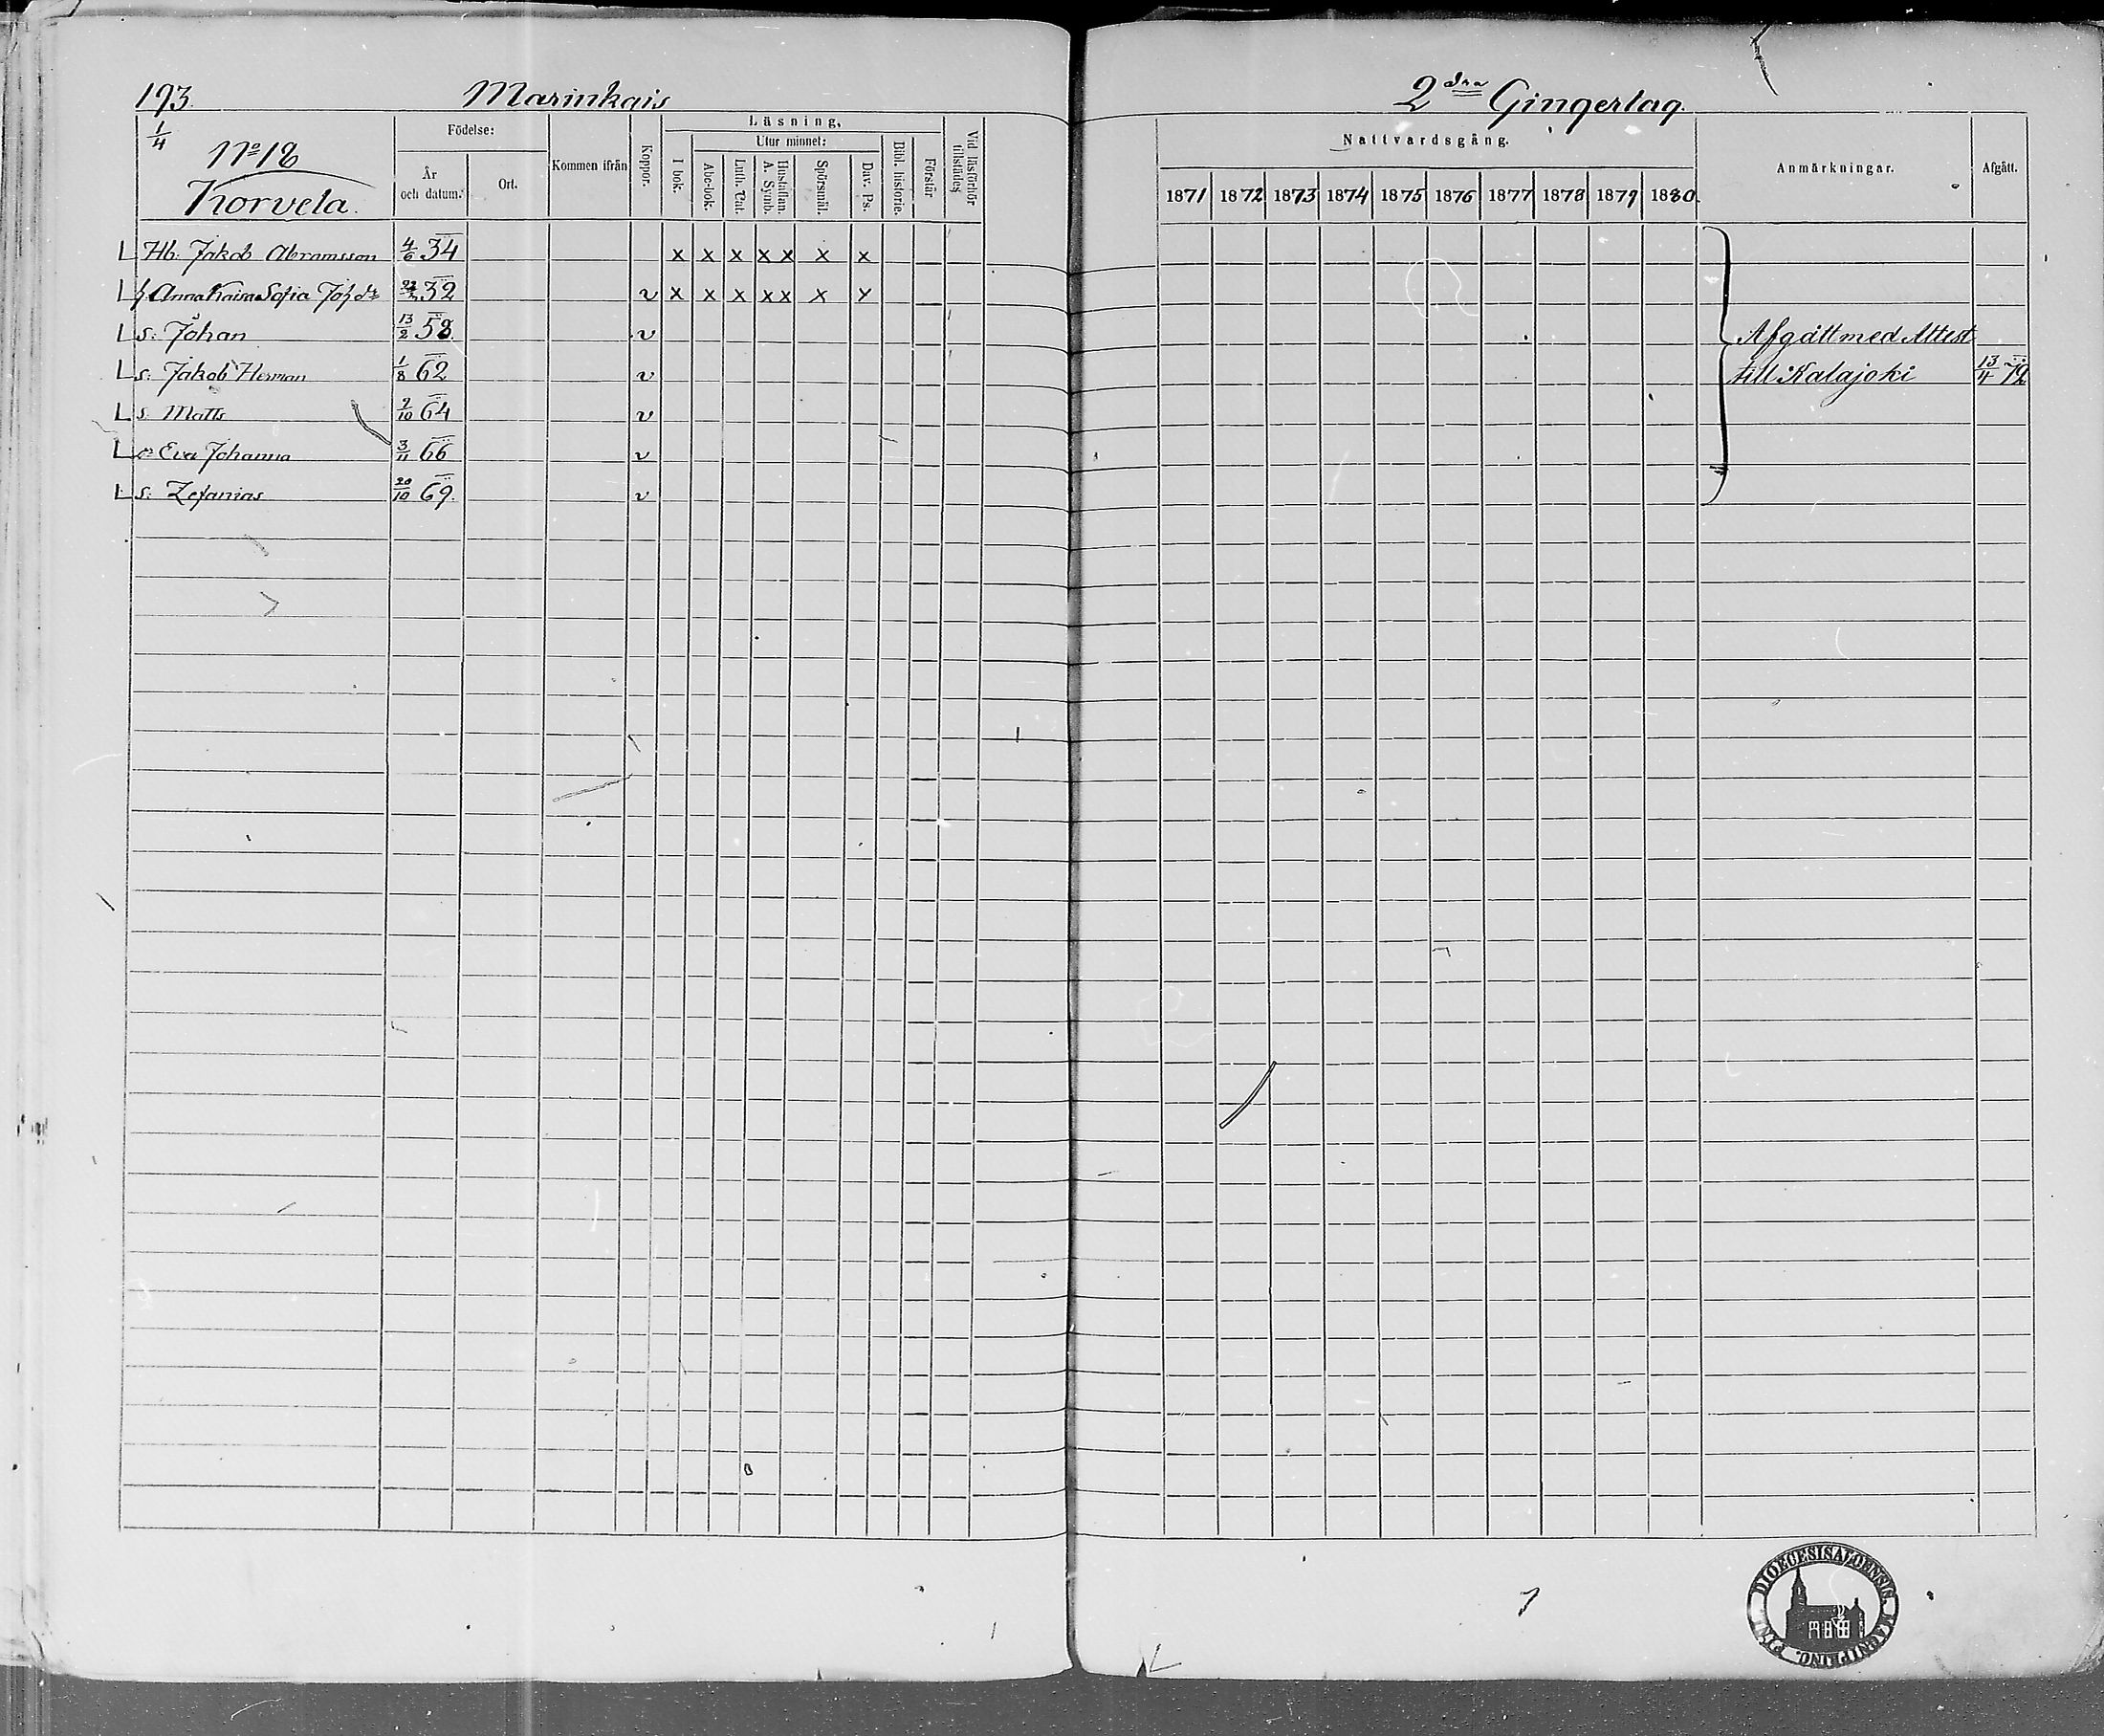 193. Marinkais
2dra Gingerlag.
1/4
No 18
Korvela.
Födelse:
År och datum.
Ort.
Kommen ifrån
Koppor.
Läsning.
I bok.
Utur minnet:
Abc-bok.
Luth. Cat.
Hustaflan. A. Symb.
Spörsmål.
Dav. Ps.
Bibl. historie.
Förstår
Vid läsförhör tillstädes
Nattvardsgång.
1871 1872 1873 1874 1875 1876 1877 1878 1879 1880.
Anmärkningar.
Afgått.
L Hb. Jakob Abramsson 4/6 34 x x x x x x x
L h. Anna Kaisa Sofia 32 v x x x x x x x
L s: Johan 13/2 58. v Afgått med Attest
L s: Jakob Herman 1/8 62 v till Kalajoki 13/4 72
L s. Matts 2/10 64 v
L Eva Johanna 3/11 66 v
L s: Zefanias 20/10 69. v